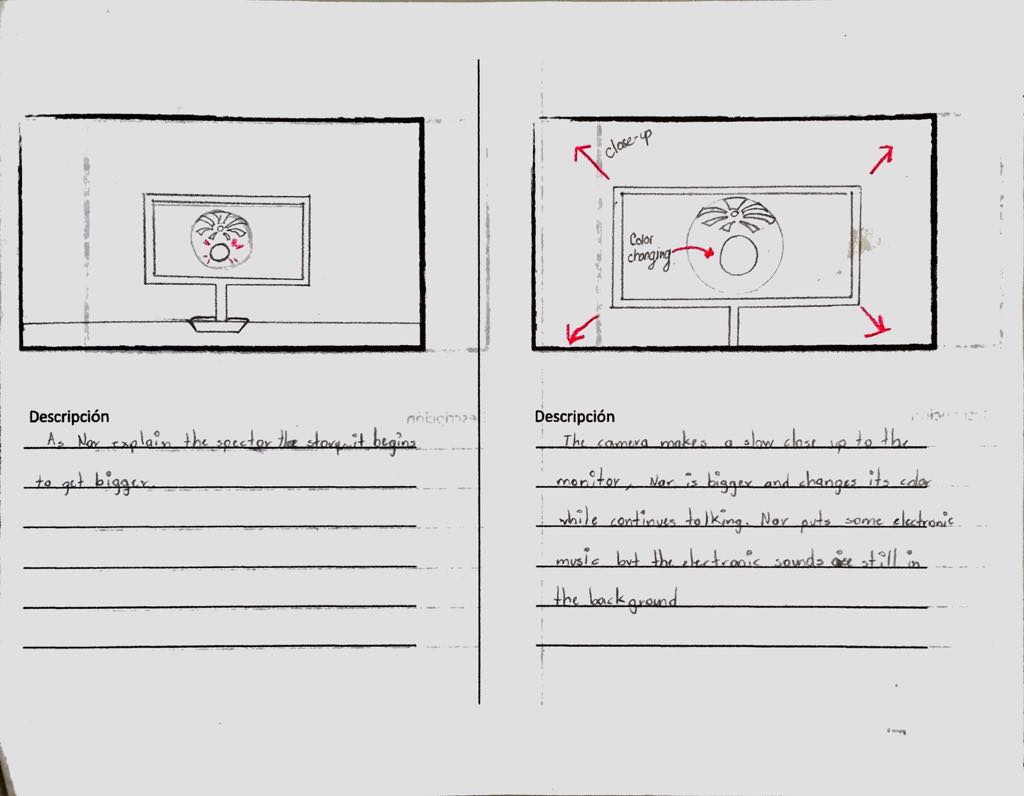 Descripción
As Nar explain the spector the story it begins
to get bigger.
close-up
Color
changing
Descripción
The camera makes a slow close up to the
monitor, Nar is bigger and changes its color
while continues talking. Nar puts some electronic
music but the electronic sounds are still in
the background